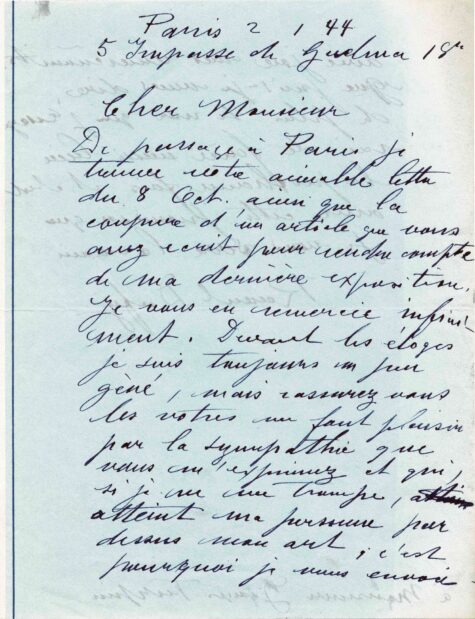 Paris 2 1 44
5 Impasse de Guelma 18e
Cher Monsieur
De passage à Paris je
trouve votre aimable lettre
du 8 Oct. ainsi que la
coupure d'un article que vous
avez ecrit pour rendre compte
de ma dernière exposition.
Je vous en remercie infini-
ment. Devant les éloges
je suis toujours un peu
gêné, mais rassurez vous
les votres me font plaisir
par la sympathie que
vous m'exprimez et qui,
si je ne me trompe,
atteint ma personne par
dessus mon art ; c'est
pourquoi je vous envoie